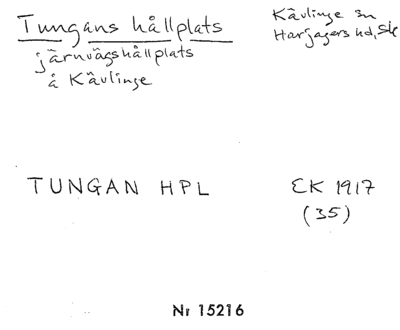 Tungans hållplats
Kävlinge sn
Harjagers hd, Sk
järnvägshållplats
å Kävlinge
TUNGAN HPL
EK 1917
(35)
Nr 15216